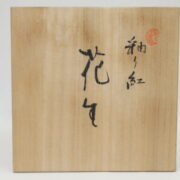 釉り紅
花生